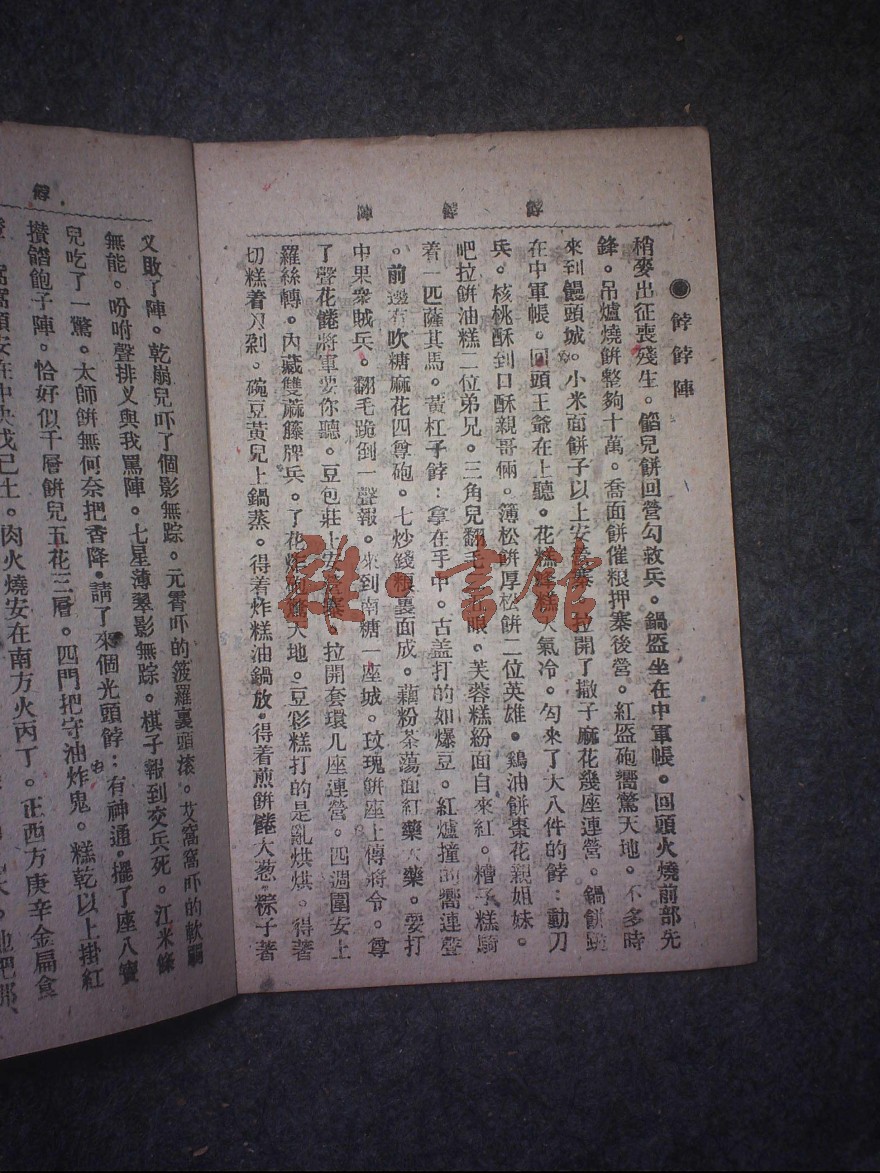 餑餑陣
●餑餑陣
稍麥出征喪殘生。餡兒餅回營勾救兵。鍋盔坐在中軍帳。回頭火燒前部先
鋒。吊爐燒餅整夠十萬。喬面餅催粮押寨後營。紅盔砲嚮驚天地。不多時
來到饅頭城。小米面餅子以上安營寨。拉開了撒子麻花幾座連營。鍋餅踅
在中軍帳。回頭王爺在上聽。花糕蜂糕 氣冷。勾來了大八件的餑：動刀
兵。核桃酥到口酥親哥倆。簿松餅厚松餅二位英雄。鷄油餅棗花親姐妹。
吧拉餅油糕二位弟兄。三角兒翻毛 眼。芙蓉糕紛面自來紅。糟子糕騎
着一匹薩其馬。黃杠子餑：拿在手中。古盖打的如爆豆。紅爐撞的嚮連聲
。前邊有吹糖麻花四尊砲。七炒錢粮裏面成。藕粉茶蕩面紅藥大藥。要打
中果衆賊兵。翻毛跪倒一聲報。來到南糖一座城。玫瑰餅座上傳將令。尊
了聲花餞將軍要你聽。豆包莊上安營寨。拉開套環儿座連營。四週圍安上
羅絲轉。內藏雙蔴籐牌兵。了花炸砲驚天地。豆彩糕打的是亂烘烘。得著
切糕着刀剁。碗豆黃兒上鍋蒸。得着炸糕油鍋放。得着煎餅餞大葱。粽子著
餑
又敗了陣。乾崩兒吓了個影無踪。元霄吓的菠羅裏頭滚。艾窩窩吓的軟
無能。吩咐聲排义與我罵陣。七星薄翠影無踪。棋子報到交兵死。江米條
兒吃了一驚。太師餅無何奈把香降。請了來個光頭餑：有神通。擺了座八寶
攅餡飽子陣。恰好似千層餅兒五花三層。四門把守油炸鬼。糕乾以上掛紅
窩窩頭安在中央戊己土。肉火燒安在南方火丙丁。正西方庚辛金扁食
雜·書館